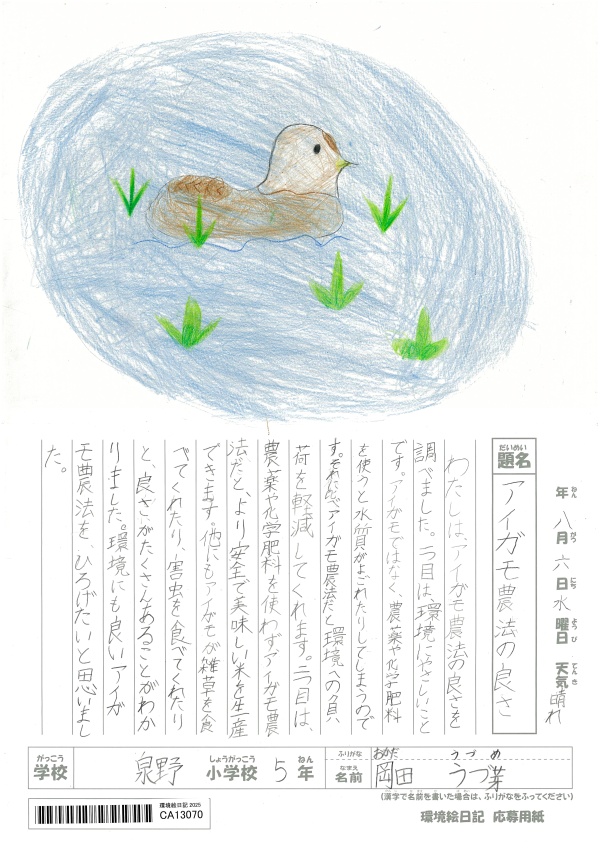 年 八月 六日 水曜日 天気 晴れ
ねん がつ にち ようび てんき
だいめい
題名
アイガモ農法の良さ
わたしは、アイガモ農法の良さを
調べました。一つ目は、環境にやさしいこと
です。アイガモではなく、農薬や化学肥料
を使うと水質がよごれたりしてしまうので
す。それにアイガモ農法だと環境への負
荷を軽減してくれます。二つ目は、
農薬や化学肥料を使わずアイガモ農
法だと、より安全で美味しい米を生産
できます。他にもアイガモが雑草を食
べてくれたり、害虫を食べてくれたり
と、良さがたくさんあることがわか
りました。環境にも良いアイガ
モ農法を、ひろげたいと思いまし
た。
がっこう しょうがっこう ねん
学校 泉野 小学校 5年
ふりがな おかだ うづめ
なまえ
名前 岡田 うづ芽
(漢字で名前を書いた場合は、ふりがなをふってください)
環境絵日記 応募用紙
環境絵日記 2025
CA13070